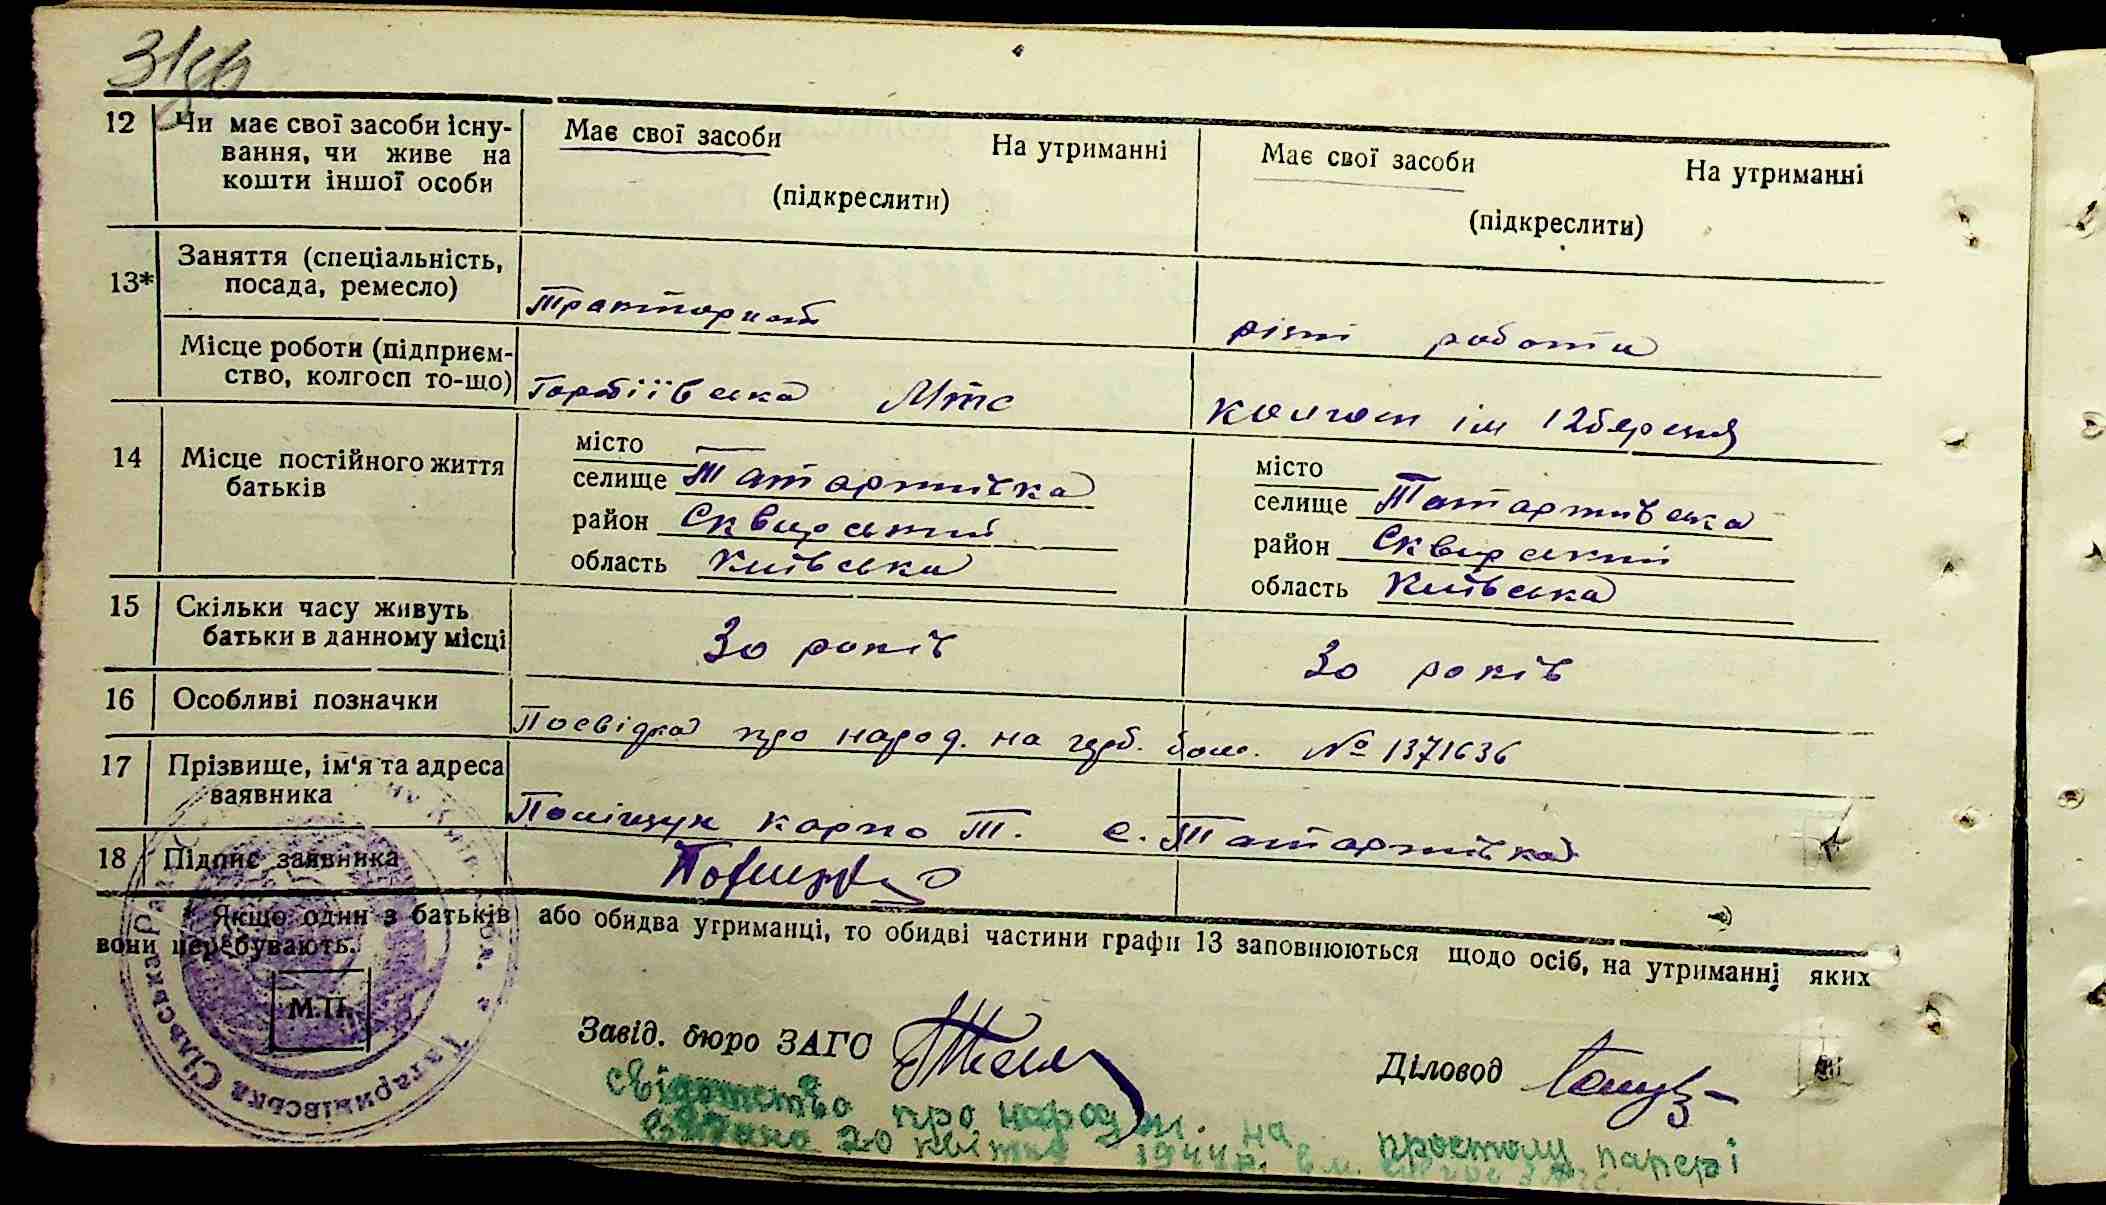 12 Чи має свої засоби існу-
вання, чи живе на
кошти іншої особи
Має свої засоби На утриманні
(підкреслити)
Має свої засоби На утриманні
(підкреслити)
13* Заняття (спеціальність,
посада, ремесло)
Тракторист
різні роботи
Місце роботи (підприєм-
ство, колгосп то-що)
Горобіївська Мтс
колгосп ім 12 березня
14 Місце постійного життя
батьків
місто
селище Татаринівка
район Сквирський
область Київська
місто
селище Татаринівська
район Сквирський
область Київська
15 Скільки часу живуть
батьки в данному місці
30 років
30 років
16 Особливі позначки
Посвідка про народ. на герб. бом. № 1371636
17 Прізвище, ім'я та адреса
заявника
Поліщук Карпо Т. с. Татаринівка
18 Підпис заявника
Якщо один з батьків або обидва утриманці, то обидві частини графи 13 заповнюються щодо осіб, на утриманні яких
вони перебувають.
М.П.
Татаринівська Сільська Рада
Завід. бюро ЗАГС
Діловод
свідотство про народж. на простому папері
видано 20 квітня 1944 р.